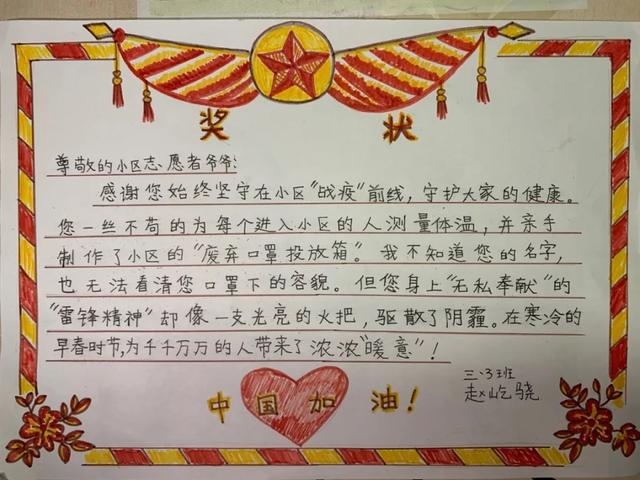 奖状
尊敬的小区志愿者爷爷:
感谢您始终坚守在小区“战疫”前线，守护大家的健康。
您一丝不苟的为每个进入小区的人测量体温，并亲手
制作了小区的“废弃口罩投放箱”。我不知道您的名字，
也无法看清您口罩下的容貌。但您身上“无私奉献”的
“雷锋精神”却像一支光亮的火把，驱散了阴霾。在寒冷的
早春时节，为千千万万的人带来了浓浓“暖意”！
三、3班
赵屹骁
中国加油！